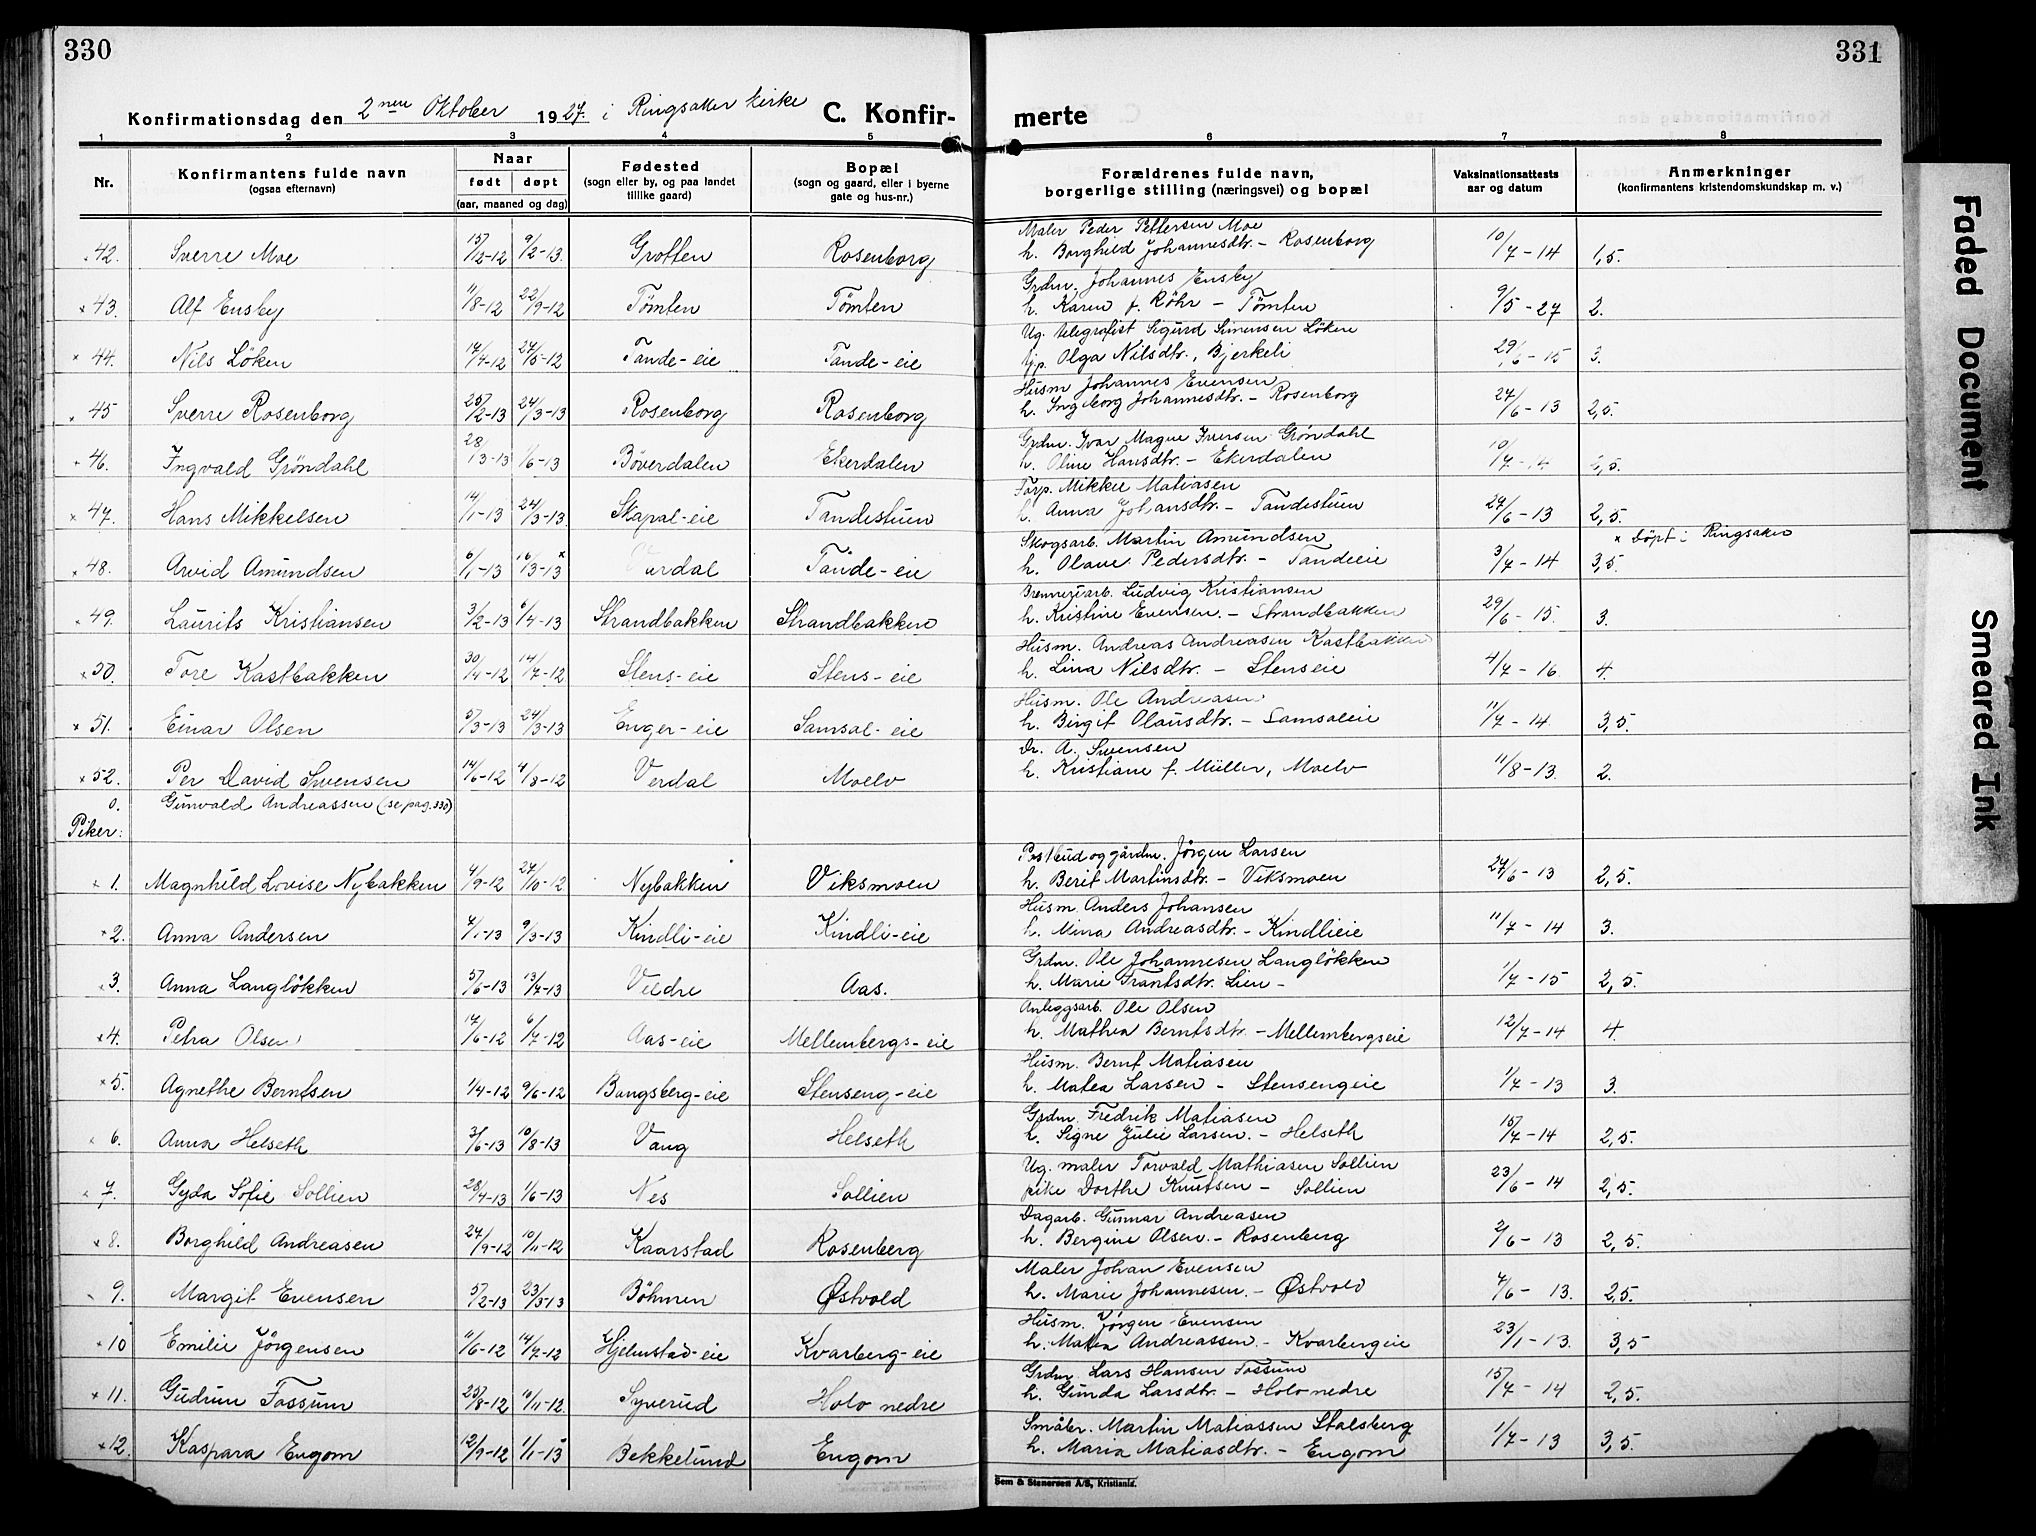 330
331
Konfirmationsdag den 2nen Oktober 1927. i Ringsaker kirke C. Konfir-
merte
1 2 3 4 5 6 7 8
Nr.
Konfirmantens fulde navn
(ogsaa efternavn)
Naar
født døpt
(aar, maaned og dag)
Fødested
(sogn eller by, og paa landet
tillike gaard)
Bopæl
(sogn og gaard, eller i byerne
gate og hus-nr.)
Forældrenes fulde navn,
borgerlige stilling (næringsvei) og bopæl
Vaksinationsattests
aar og datum
Anmerkninger
(konfirmantens kristendomskundskap m. v.)
Maler Peder Pettersen Moe
42. Sverre Moe 15/2-12 9/2-13. Grotten Rosenborg h. Borghild Johannesdtr. - Rosenborg 10/7-14 1,5.
Grdm. Johannes Ensby
43. Alf Ensby 11/8-12 22/9-12 Tömten Tömten h. Karen f. Röhr - Tömten 9/5-27 2.
Ug. telegrafist Sigurd Simensen Löken
44. Nils Löken 14/4-12 Tande-eie Tande-eie Olga Nilsdtr., Bjerkeli 29/6-15 3.
Husm. Johannes Evensen
45 Sverre Rosenborg 25/2-13 24/3-13 Rosenborg Rosenborg h. Ingeborg Johannesdtr. - Rosenborg 24/6-13 2,5.
Grdm. Ivar Magne Iversen Gröndahl
46. Ingvald Gröndahl 28/3-13 1/6-13 Böverdalen Ekerdalen h. Oline Hansdtr. - Ekerdalen 10/7-14
Torp. Mikkel Matiasen
47. Hans Mikkelsen 14/1-13 24/3-13 Skapal-eie Tandestuen h. Anna Johansdtr. - Tandestuen 29/6-13 2,5.
Skogsarb. Martin Amundsen x döpt i Ringsaker
48. Arvid Amundsen 6/1-13 16/3-13 x Verdal Tande-eie h. Olave Pedersdtr. - Tandeeie 3/7-14 3,5.
Brenneriarb. Ludvig Kristiansen
49. Laurits Kristiansen 3/2-13 6/4-13 Strandbakken Strandbakken h. Kristine Evensen. - Strandbakken 29/6-15. 3.
Husm. Andreas Andreasen Kastbakken
50. Tore Kastbakken 30/4-12 14/7-12 Stens-eie Stens-eie h. Lina Nilsdtr. - Stenseie 4/7-16 4.
Husm. Ole Andreasen
51. Einar Olsen 5/3-13 24/3-13 Enger-eie Samsal-eie h. Birgit Olausdtr. - Samsaleie 11/7-14. 3,5.
Dr. A. Swensen
52. Per David Swensen 14/6-12 4/8-12 Verdal Moelv h. Kristiane f. Müller, Moelv 11/8-13. 2.
0. Gunvald Andreassen (se pag. 330)
Piker:
Postbud og gårdm. Jörgen Larsen
1. Magnhild Lovise Nybakken 4/9-12 27/10-12 Nybakken Viksmoen h. Berit Martinsdtr. - Viksmoen 24/6-13 2,5.
Husm. Anders Johansen
2. Anna Andersen 4/1-13 9/3-13 Kindli-eie Kindli-eie h. Mina Andreasdtr. - Kindlieie 11/7-14 3.
Grdm. Ole Johannesen Langlökken
3. Anna Langlökken 5/6-13 13/7-13 Veldre Aas. h. Marie Frantsdtr. Lien - 1/7-15 2,5.
Anleggsarb. Ole Olsen
4. Petra Olsen 17/6-12 6/7-12 Aas-eie Mellembergs-eie h. Mathea Berntsdtr. - Mellembergseie 12/7-14 4.
Husm. Bernt Matiasen
5. Agnethe Berntsen 1/4-12 9/6-12 Bangsberg-eie Stenseng-eie h. Matea Larsen - Stensengeie 1/7-13 3.
Grdm. Fredrik Matiasen
6. Anna Helseth 3/6-13 10/8-13 Vang Helseth h. Signe Julie Larsen. - Helseth 15/7-14 2,5.
Ug. maler Torvald Mathiasen Sollien
7. Gyda Sofie Sollien 28/4-13 1/6-13 Nes Sollien pike Dorthe Knutsen - Sollien 23/6-14 2,5.
Dagarb. Gunnar Andreasen
8. Borghild Andreasen 24/9-12 10/11-12 Kaarstad Rosenberg h. Bergine Olsen. - Rosenberg 2/6-13 2,5.
Maler Johan Evensen
9. Margit Evensen 5/2-13 23/3-13 Böhmen Østvold h. Marie Johannesen. - Østvold 4/6-13. 2,5.
Husm. Jörgen Evensen
10 Emilie Jörgensen 11/6-12 14/7-12 Hjelmstad-eie Kvarberg-eie h. Matea Andreassen - Kvarbergeie 23/1-13. 3,5
Grdm. Lars Hansen Fossum
11. Gudrun Fossum 25/8-12 10/11-12. Syverud Holo nedre h. Gunda Larsdtr. - Holo nedre 15/7-14 2,5.
Småbr. Martin Matiassen Stalsberg
12. Kaspara Engom 12/9-12 1/1-13 Bekkelund Engom h. Maria Matiasdtr. - Engom 1/7-13 3,5.
Sem & Stenersen A/S, Kristiania.
Faded Document
Smeared Ink